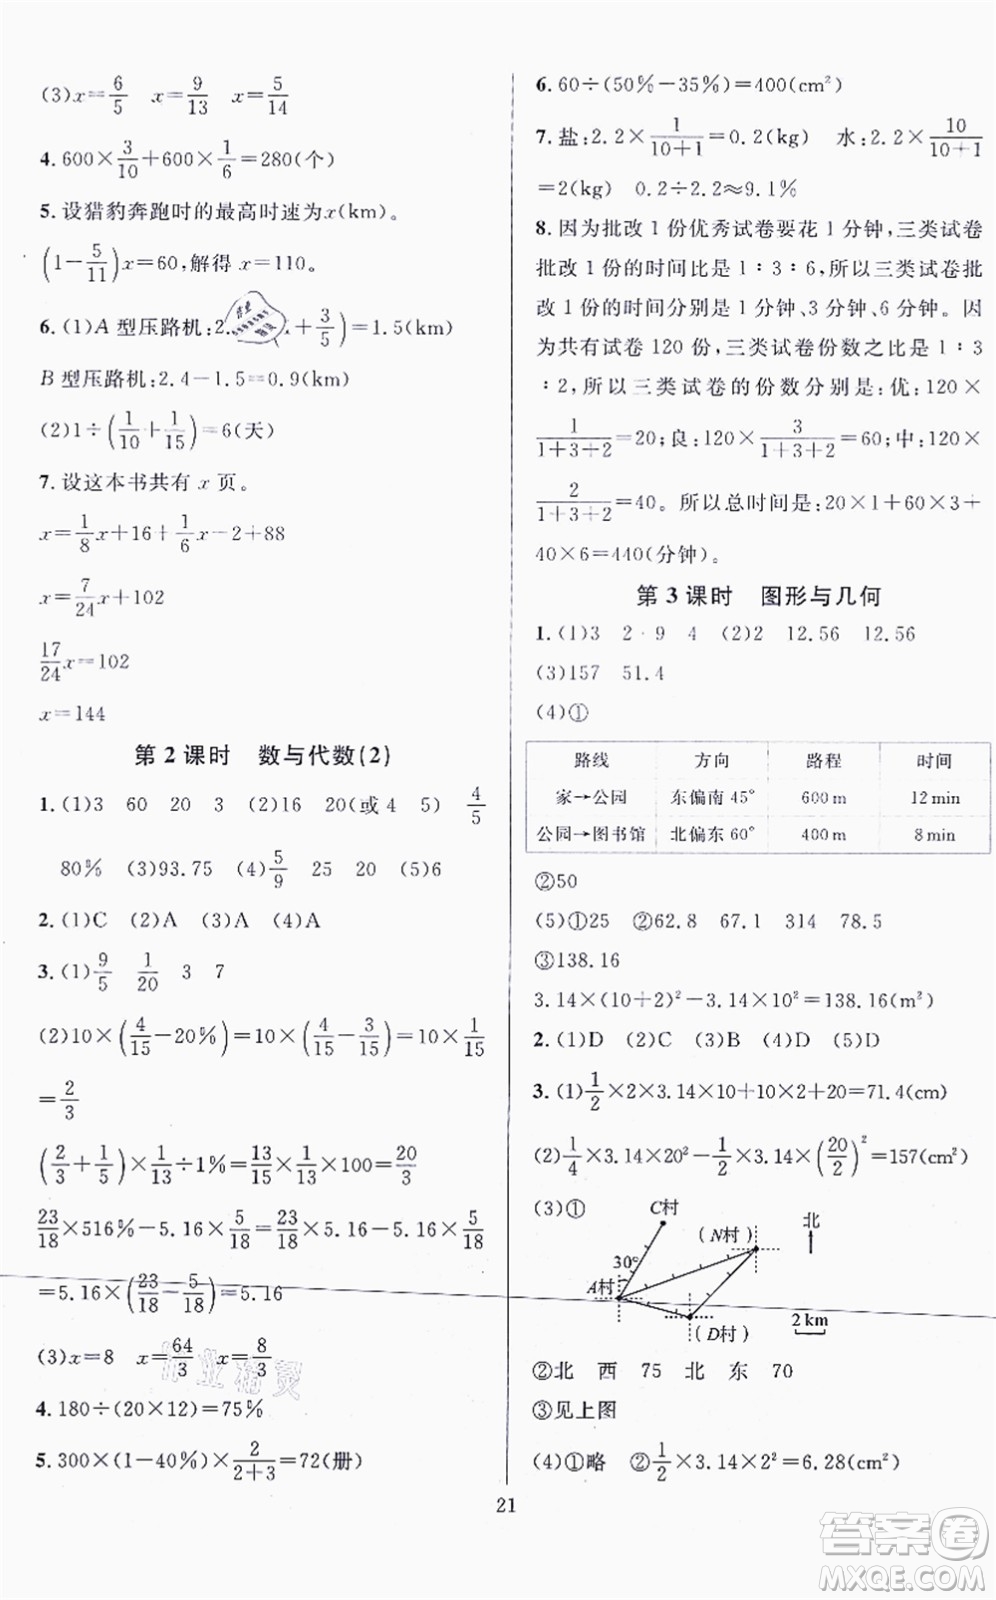 (3)x=6/5 x=9/13 x=5/14
4.600×3/10+600×1/6=280(个)
5.设猎豹奔跑时的最高时速为x(km)。
(1-5/11)x=60,解得 x=110。
6.(1)A 型压路机:2. +3/5)=1.5(km)
B 型压路机:2.4-1.5=0.9(km)
(2)1÷(1/10+1/15)=6(天)
7.设这本书共有 x 页。
x=1/8x+16+1/6x-2+88
x=7/24x+102
17/24x=102
x=144
第 2 课时 数与代数(2)
1.(1)3 60 20 3 (2)16 20(或4 5) 4/5
80% (3)93.75 (4)5/9 25 20 (5)6
2.(1)C (2)A (3)A (4)A
3.(1)9/5 1/20 3 7
(2)10×(4/15-20%)=10×(4/15-3/15)=10×1/15
=2/3
(2/3+1/5)×1/13÷1%=13/15×1/13×100=20/3
23/18×516%-5.16×5/18=23/18×5.16-5.16×5/18
=5.16×(23/18-5/18)=5.16
(3)x=8 x=64/3 x=8/3
4.180÷(20×12)=75%
5.300×(1-40%)×2/(2+3)=72(册)
6.60÷(50%-35%)=400(cm²)
7.盐:2.2×1/(10+1)=0.2(kg) 水:2.2×10/(10+1)
=2(kg) 0.2÷2.2≈9.1%
8.因为批改 1 份优秀试卷要花 1 分钟,三类试卷
批改 1 份的时间比是 1∶3∶6,所以三类试卷批
改 1 份的时间分别是 1 分钟、3 分钟、6 分钟。因
为共有试卷 120 份,三类试卷份数之比是 1∶3
∶2,所以三类试卷的份数分别是:优:120×
1/(1+3+2)=20;良:120×3/(1+3+2)=60;中:120×
2/(1+3+2)=40。所以总时间是:20×1+60×3+
40×6=440(分钟)。
第 3 课时 图形与几何
1.(1)3 2 9 4 (2)2 12.56 12.56
(3)157 51.4
(4)①
路线 方向 路程 时间
家→公园 东偏南 45° 600 m 12 min
公园→图书馆 北偏东 60° 400 m 8 min
②50
(5)①25 ②62.8 67.1 314 78.5
③138.16
3.14×(10+2)²-3.14×10²=138.16(m²)
2.(1)D (2)C (3)B (4)D (5)D
3.(1)1/2×2×3.14×10+10×2+20=71.4(cm)
(2)1/4×3.14×20²-1/2×3.14×(20/2)²=157(cm²)
(3)①
C村
(N村)
北
30°
A村
(D村)
2 km
②北 西 75 北 东 70
③见上图
(4)①略 ②1/2×3.14×2²=6.28(cm²)
21
答案卷
MXQE.COM